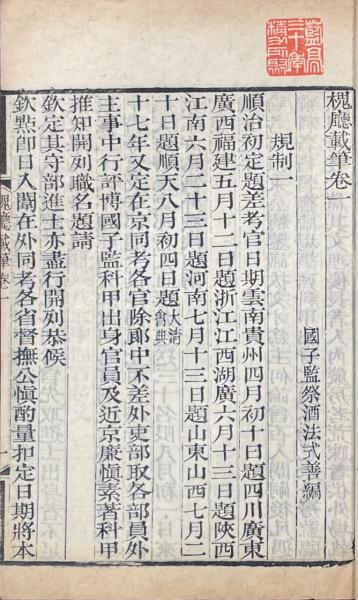 槐廳載筆卷一
國子監祭酒法式善編
規制一
順治初定題差考官日期雲南貴州四月初十日題四川廣東
廣西福建五月十二日題浙江江西湖廣六月十三日題陝西
江南六月二十三日題河南七月十三日題山東山西七月二
十日題順天八月初四日題大清會典
十七年又定在京同考各官除郎中不差外吏部取各部員外
主事中行評博國子監科甲出身官員及近京廉愼素著科甲
推知開列職名題請
欽定其守部進士亦盡行開列恭候
欽點卽日入闈在外同考各省督撫公愼酌量扣定日期將本
槐廳載筆 卷一
一